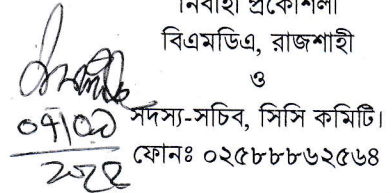 নির্বাহী প্রকৌশলী
বিএমডিএ, রাজশাহী
ও
সদস্য-সচিব, সিসি কমিটি।
ফোনঃ ০২৫৮৮৮৬২৫৬৪